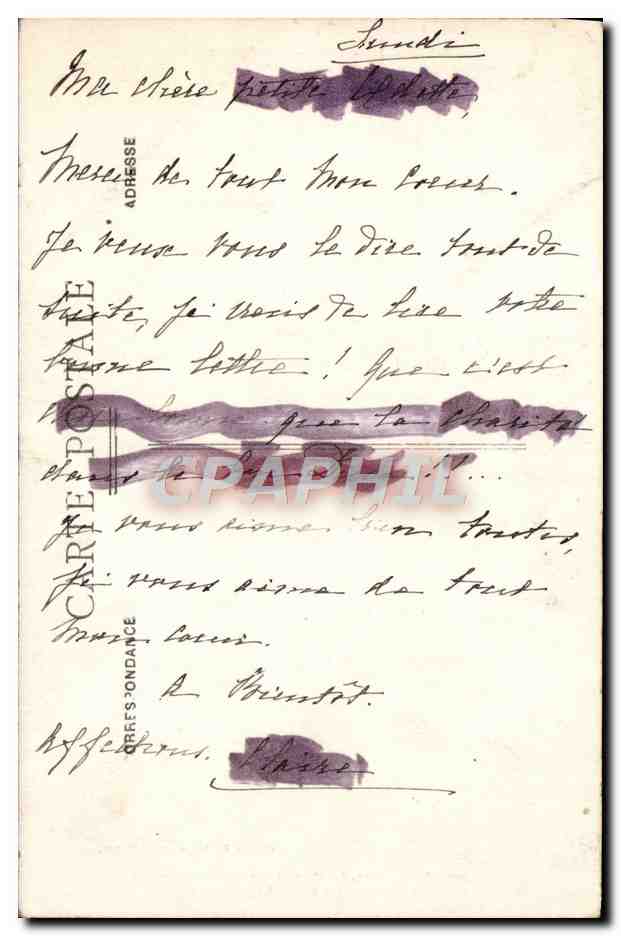 Lundi
Ma chère petite Odette,
Merci de tout mon coeur.
Je veux vous le dire tout de
suite, je viens de lire votre
bonne lettre! Que c'est
bon que la charité
dans le !!...
Je vous aime bien toutes,
Je vous aime de tout
mon coeur.
A Bientôt.
Affections.
Claire
ADRESSE
CARTE POSTALE
CORRESPONDANCE
CPAPHIL